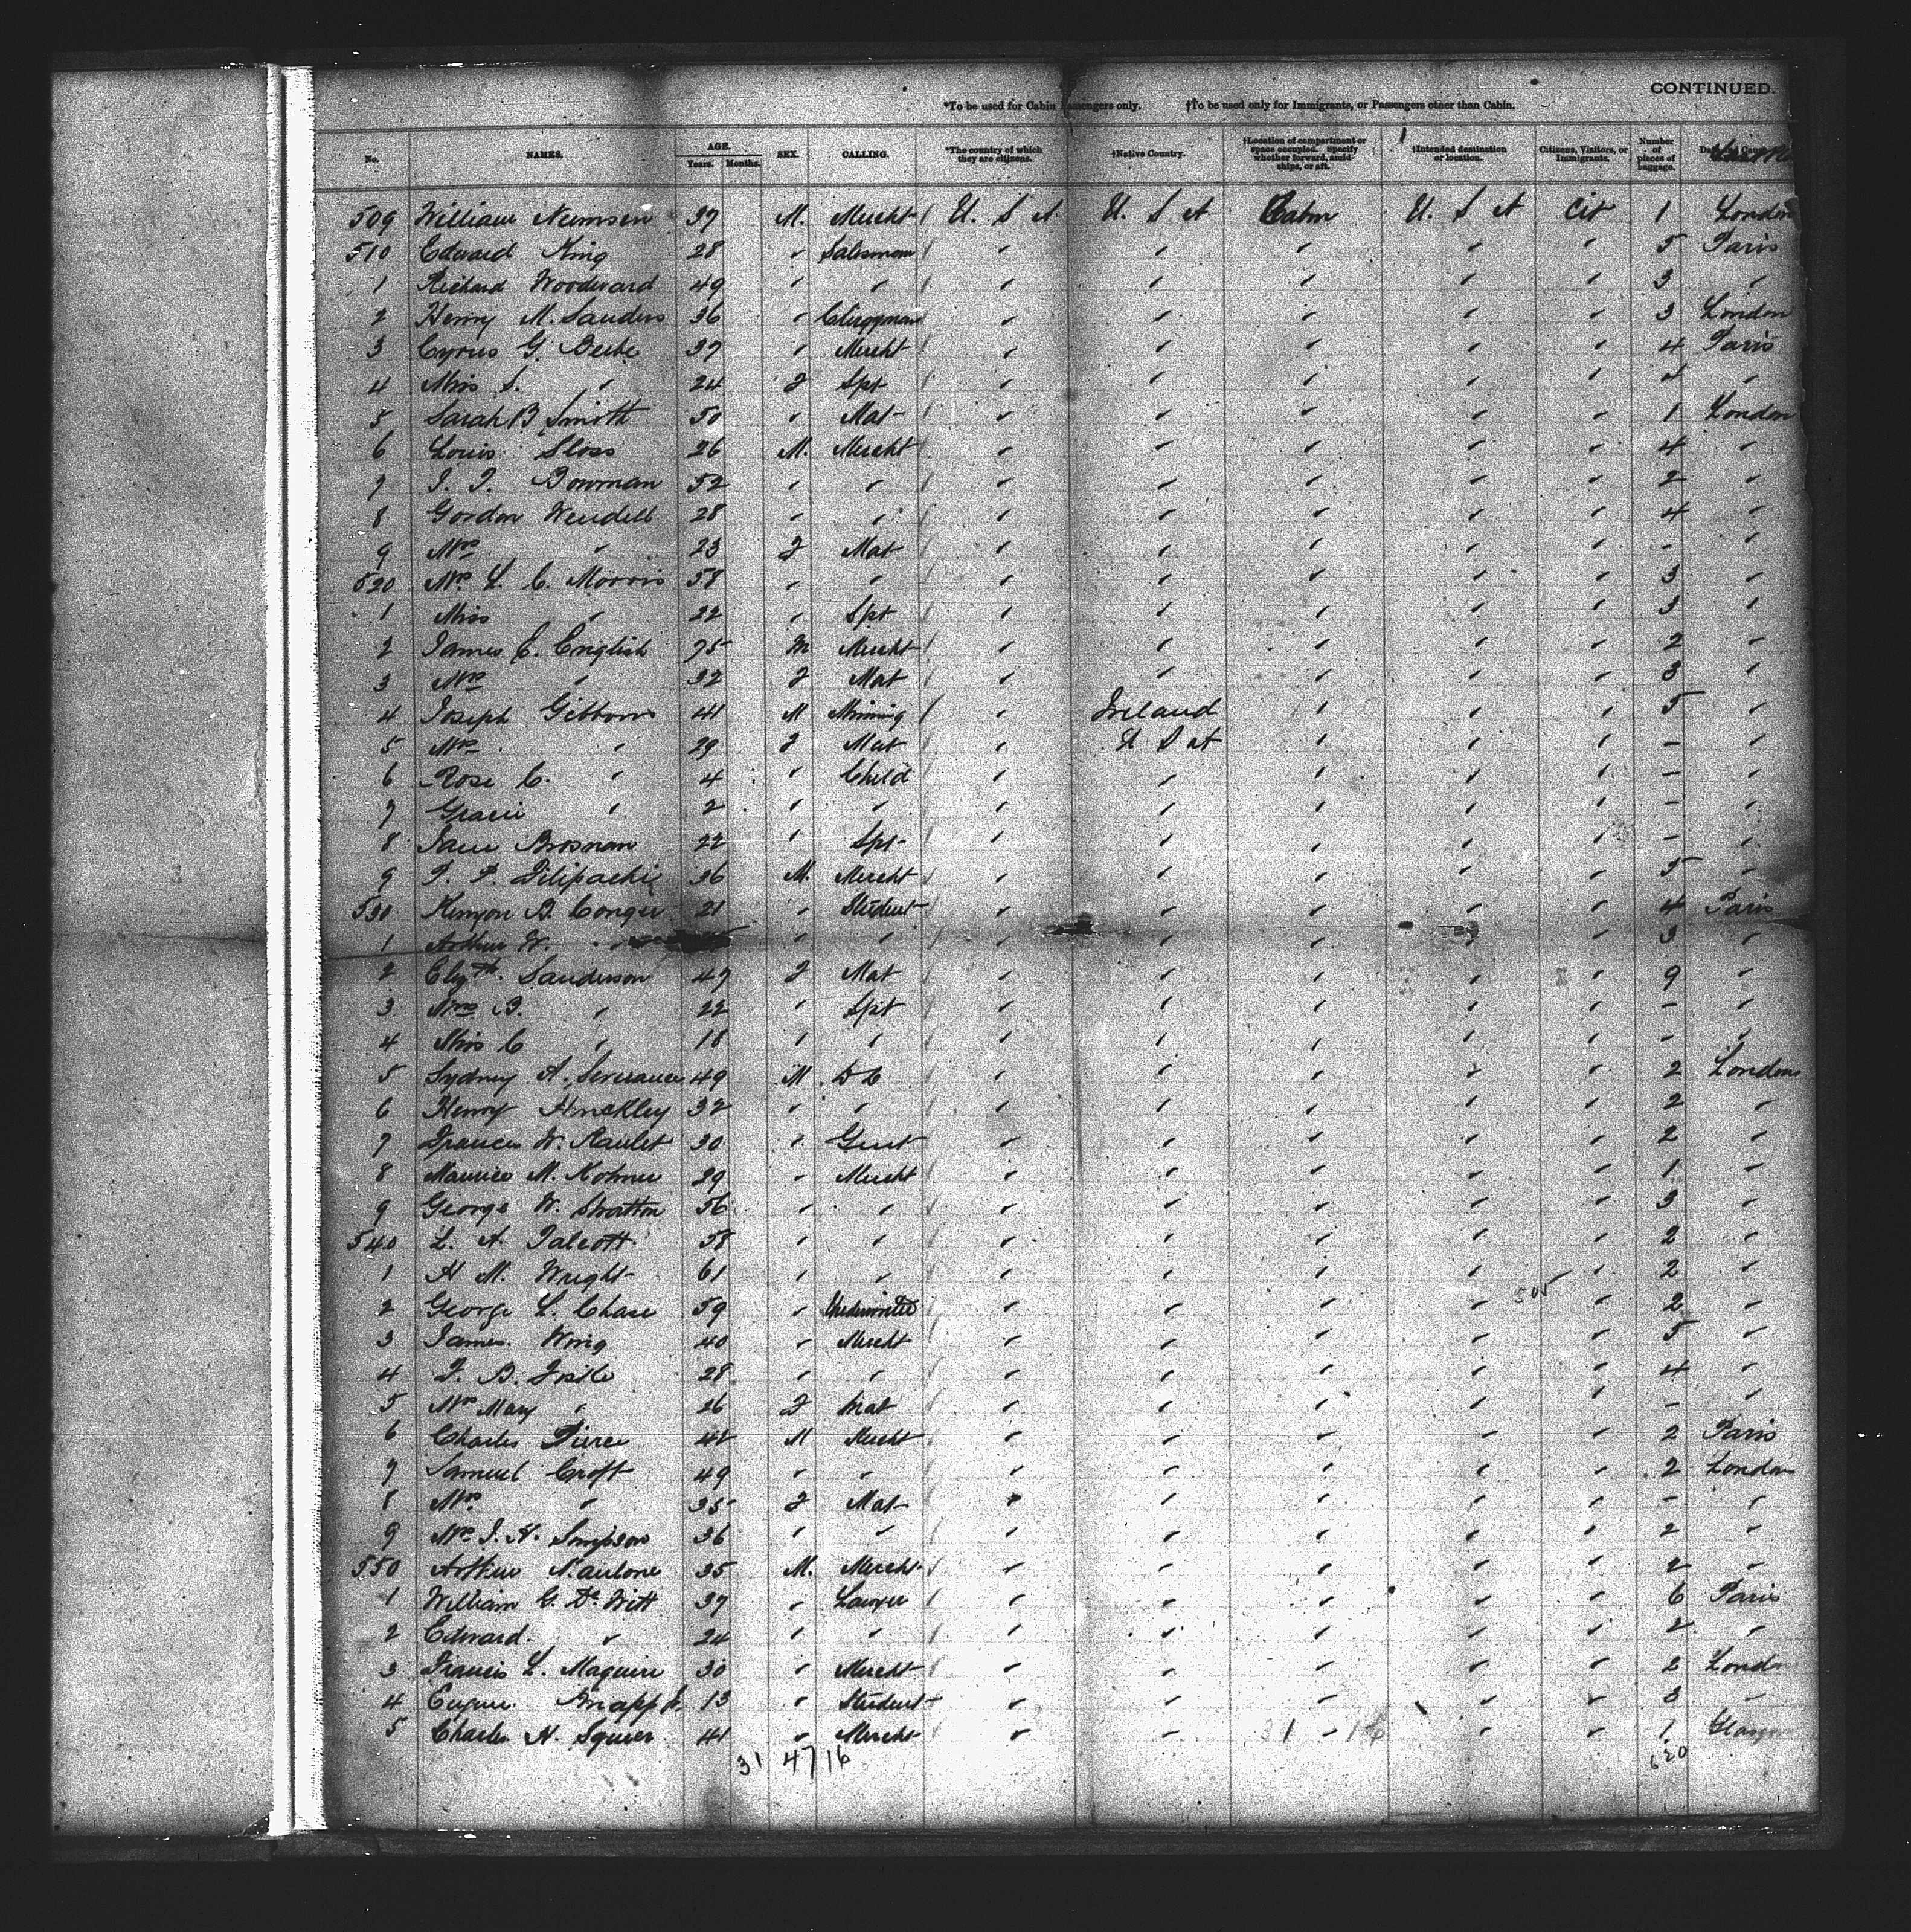 CONTINUED.
*To be used for Cabin Passengers only. †To be used only for Immigrants, or Passengers other than Cabin.
No. NAMES. AGE. Years. Months. SEX. CALLING. *The country of which they are citizens. †Native Country. †Location of compartment or space occupied. Specify whether forward, amidships, or aft. †Intended destination or location. Citizens, Visitors, or Immigrants. Number of pieces of baggage.
509 William Numsen 37 M. Mercht U. S A U. S A Cabin U. S A Cit 1 London
510 Edward King 28 " Salesman " " " " " 5 Paris
1 Richard Woodward 49 " " " " " " " 3 "
2 Henry M. Sanders 36 " Clergyman " " " " " 3 London
3 Cyrus G. Beebe 37 " Mercht " " " " " 4 Paris
4 Miss S. " 24 F Spt " " " " " 4 "
5 Sarah B Smith 50 " Mat " " " " " 1 London
6 Louis Sloss 26 M. Mercht " " " " " 4 "
7 Bowman 52 " " " " " " " 2 "
8 Gordon Wendell 28 " " " " " " " 4 "
9 Mrs " 23 F Mat " " " " " - "
520 Mrs L. C. Morris 58 " " " " " " " 3 "
1 Miss " 22 " Spt " " " " " 3 "
2 James E. English 75 M Mercht " " " " " 2 "
3 Mrs " 32 F Mat " " " " " 3 "
4 Joseph Gibbons 41 M Mining " Ireland " " " 5 "
5 Mrs " 29 F Mat " U S A " " " - "
6 Rose C. " 4 " Child " " " " " - "
7 Gracie " 2 " " " " " " " - "
8 Jane Brosnan 22 " Spt " " " " " - "
9 36 M. Mercht " " " " " 5 "
530 Kenyon B. Conger 21 " Student " " " " " 4 Paris
1 Arthur W. " " " " " " " " 3 "
2 Elizth. Sanderson 47 F Mat " " " " " 9 "
3 B. " 22 " Spt " " " " " - "
4 Miss C " 18 " " " " " " " - "
5 Sydney A. Severance 49 M " " " " " 2 London
6 Henry Hinckley 32 " " " " " " " 2 "
7 W. 30 " Gent " " " " " 2 "
8 Maurice M. Kohner 29 " Mercht " " " " " 1 "
9 George W. Stratton 56 " " " " " " " 3 "
540 L. A. Talcott 58 " " " " " " " 2 "
1 H M. Wright 61 " " " " " " " 2 "
2 George L. Chase 59 " Underwriter " " " " " 2 "
3 James Wing 40 " Mercht " " " " " 5 "
4 28 " " " " " " " 4 "
5 Mrs Mary " 26 F Mat " " " " " - "
6 Charles Pierce 42 M Mercht " " " " " 2 Paris
7 Samuel Croft 49 " " " " " " " 2 London
8 Mrs " 35 F Mat " " " " " - "
9 Mrs J. H. Simpson 36 " " " " " " " 2 "
550 Arthur 35 M. Mercht " " " " " 2 "
1 William G. De Witt 37 " Lawyer " " " " " 6 Paris
2 Edward " 24 " " " " " " " 2 "
3 Francis L. Maguire 30 " Mercht " " " " " 2 Londo
4 Eugene Knapp Jr. 13 " Student " " " " " 3 "
5 Charles H. Squier 41 " Mercht " " 31 - 16 " " 1 Glasgow
31 47 16